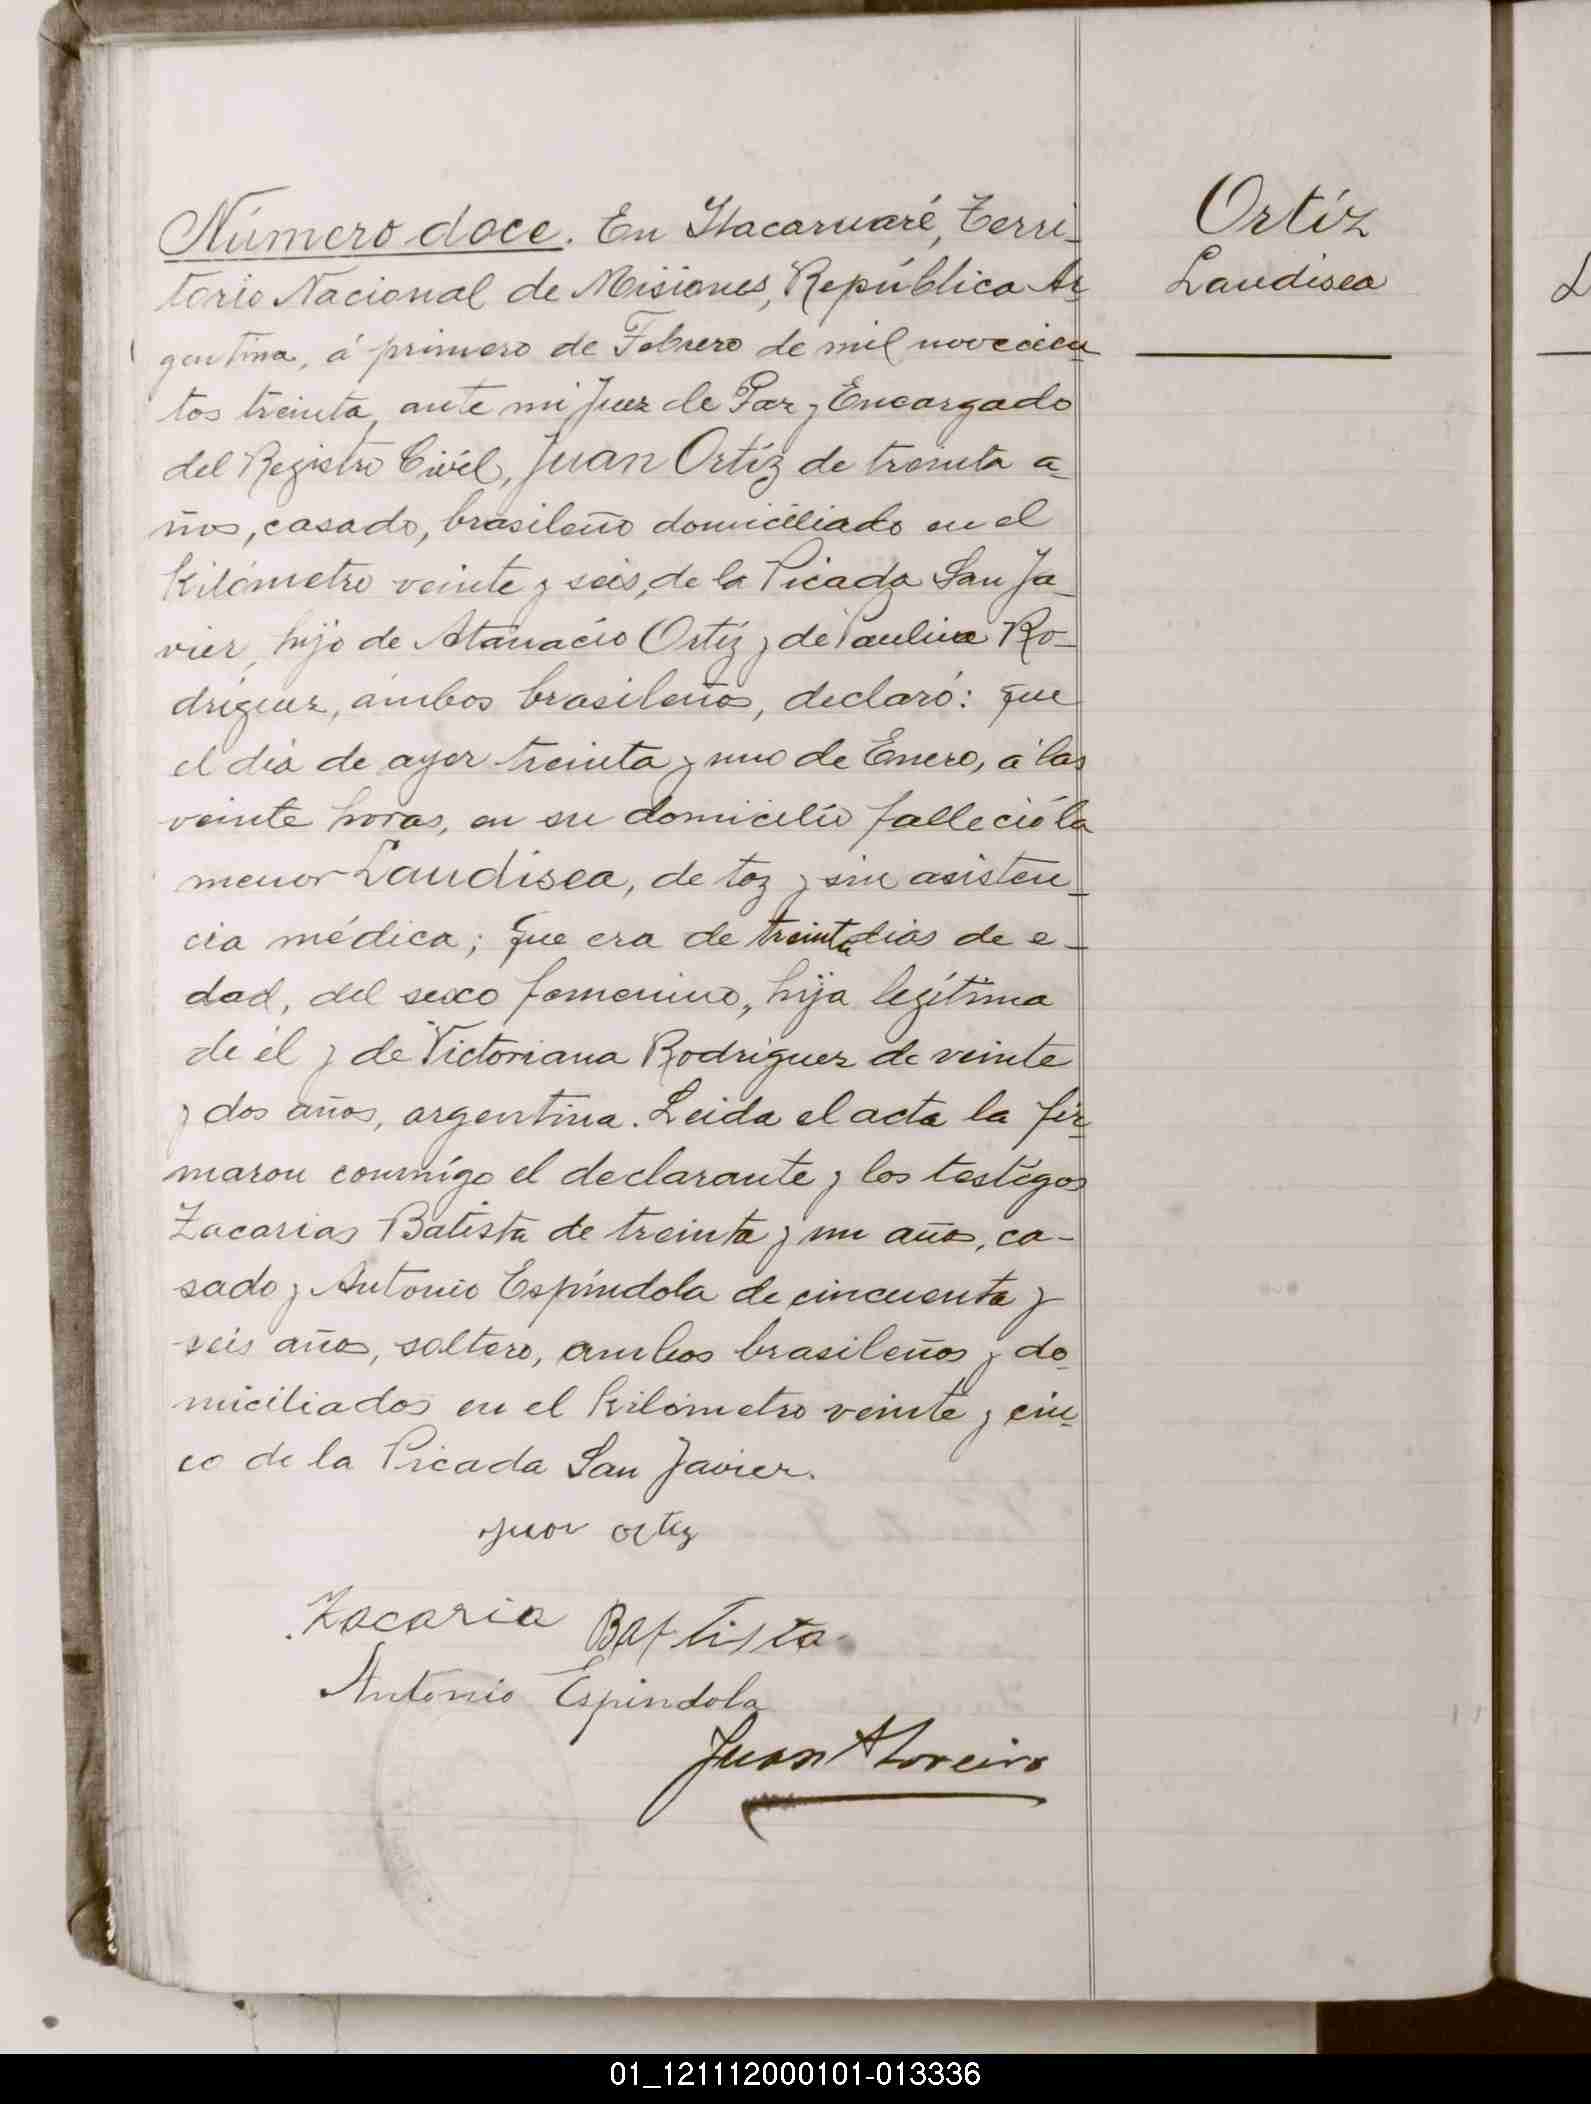 Número doce. En Itacaruaré, Terri-
torio Nacional de Misiones, República Ar-
gentina, á primero de Febrero de mil novecien-
tos treinta, ante mi Juez de Paz y Encargado
del Registro Civil, Juan Ortíz de treinta a-
ños, casado, brasileño domiciliado en el
Kilómetro veinte y seis, de la Picada San Ja-
vier, hijo de Atanacio Ortíz y de Paulina Ro-
dríguez, ámbos brasileños, declaró: que
el día de ayer treinta y uno de Enero, á las
veinte horas, en su domicilio falleció la
menor Laudisea, de toz y sin asisten-
cia médica; que era de treinta dias de e-
dad, del sexo femenino, hija legítima
de él y de Victoriana Rodriguez de veinte
y dos años, argentina. Leida el acta la fir-
maron conmígo el declarante y los testígos
Zacarias Batista de treinta y un años, ca-
sado y Antonio Espíndola de cincuenta y
seis años, soltero, ambos brasileños y do-
miciliados en el Kilómetro veinte y cin-
co de la Picada San Javier.
Juan Ortiz
Zacaria Baptista
Antonio Espindola
Juan
Ortíz
Laudisea
L
01_121112000101-013336